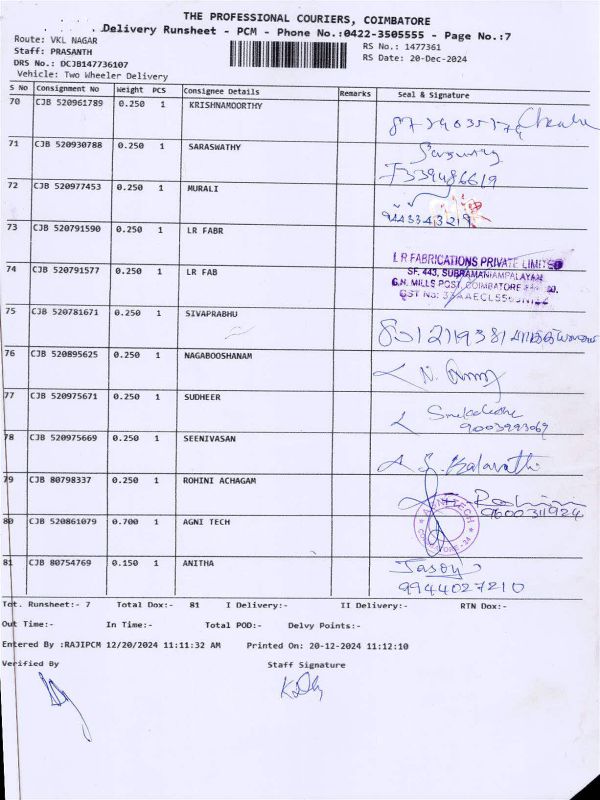 THE PROFESSIONAL COURIERS, COIMBATORE
Delivery Runsheet - PCM - Phone No.:0422-3505555 - Page No.:7
Route: VKL NAGAR
RS No.: 1477361
Staff: PRASANTH
RS Date: 20-Dec-2024
DRS No.: DCJB147736107
Vehicle: Two Wheeler Delivery
S No Consignment No Weight PCS Consignee Details Remarks Seal & Signature
70 CJB 520961789 0.250 1 KRISHNAMOORTHY
71 CJB 520930788 0.250 1 SARASWATHY
7339486619
72 CJB 520977453 0.250 1 MURALI
9443343219
73 CJB 520791590 0.250 1 LR FABR
L R FABRICATIONS PRIVATE LIMITED
74 CJB 520791577 0.250 1 LR FAB
SF. 443, SUBRAMANIAMPALAYAM
G.N. MILLS POST, COIMBATORE
GST No:
75 CJB 520781671 0.250 1 SIVAPRABHU
76 CJB 520895625 0.250 1 NAGABOOSHANAM
N.
77 CJB 520975671 0.250 1 SUDHEER
9003993069
78 CJB 520975669 0.250 1 SEENIVASAN
S. Kalavathi
79 CJB 80798337 0.250 1 ROHINI ACHAGAM
Rohini
9600311924
80 CJB 520861079 0.700 1 AGNI TECH
AGNI TECH
COIMBATORE-34
81 CJB 80754769 0.150 1 ANITHA
Jason
9944027210
Tot. Runsheet:- 7 Total Dox:- 81 I Delivery:- II Delivery:- RTN Dox:-
Out Time:- In Time:- Total POD:- Delvy Points:-
Entered By :RAJIPCM 12/20/2024 11:11:32 AM Printed On: 20-12-2024 11:12:10
Verified By Staff Signature